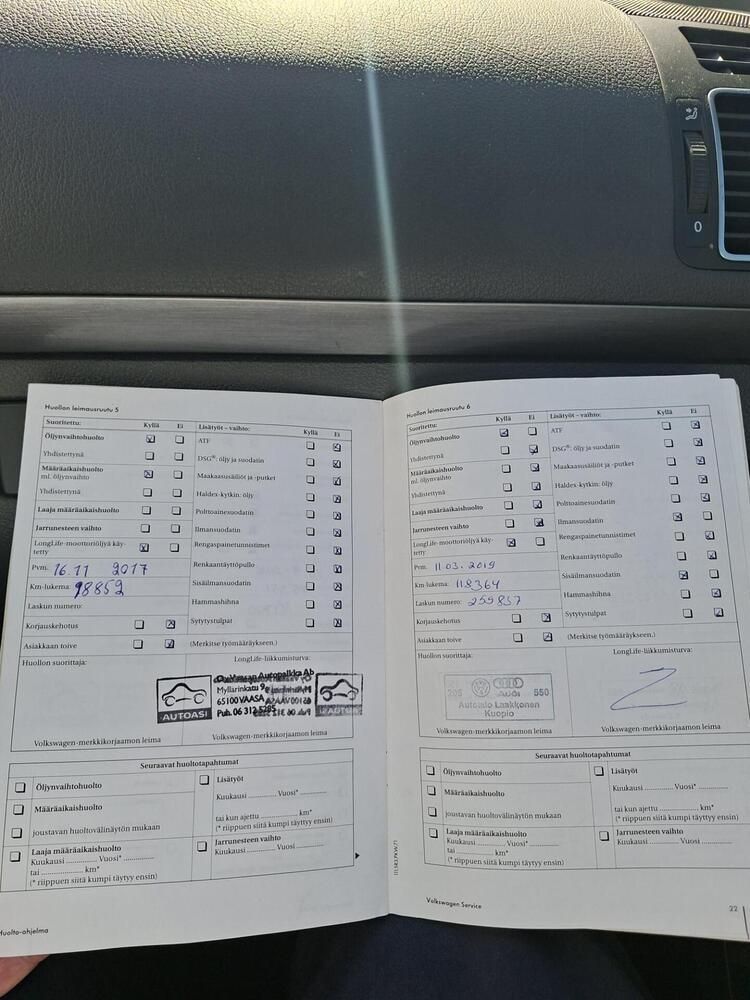 0
Huollon leimausruutu 5
Suoritettu: Kyllä Ei
Öljynvaihtohuolto
Yhdistettynä
Määräaikaishuolto
ml. öljynvaihto
Yhdistettynä
Laaja määräaikaishuolto
Jarrunesteen vaihto
LongLife-moottoriöljyä käy-
tetty
Pvm. 16.11 2017
Km-lukema: 98852
Laskun numero:
Korjauskehotus
Asiakkaan toive
Lisätyöt – vaihto: Kyllä Ei
ATF
DSG®: öljy ja suodatin
Maakaasusäiliöt ja -putket
Haldex-kytkin: öljy
Polttoainesuodatin
Ilmansuodatin
Rengaspainetunnistimet
Renkaantäyttöpullo
Sisäilmansuodatin
Hammashihna
Sytytystulpat
(Merkitse työmääräykseen.)
Huollon suorittaja:
LongLife-liikkumisturva:
AUTOASI
Oy Vaasan Autopalkka Ab
Myllärinkatu 9
65100 VAASA
Puh. 06 312 5285
Volkswagen-merkkikorjaamon leima
Volkswagen-merkkikorjaamon leima
Seuraavat huoltotapahtumat
Öljynvaihtohuolto
Määräaikaishuolto
joustavan huoltovälinäytön mukaan
Laaja määräaikaishuolto
Kuukausi ............ Vuosi* ............
tai ............ km*
(* riippuen siitä kumpi täytyy ensin)
Lisätyöt
Kuukausi ............ Vuosi* ............
tai kun ajettu ............ km*
(* riippuen siitä kumpi täytyy ensin)
Jarrunesteen vaihto
Kuukausi ............ Vuosi ............
Huolto-ohjelma
Huollon leimausruutu 6
Suoritettu: Kyllä Ei
Öljynvaihtohuolto
Yhdistettynä
Määräaikaishuolto
ml. öljynvaihto
Yhdistettynä
Laaja määräaikaishuolto
Jarrunesteen vaihto
LongLife-moottoriöljyä käy-
tetty
Pvm. 11.03.2019
Km-lukema: 118364
Laskun numero: 259837
Korjauskehotus
Asiakkaan toive
Lisätyöt – vaihto: Kyllä Ei
ATF
DSG®: öljy ja suodatin
Maakaasusäiliöt ja -putket
Haldex-kytkin: öljy
Polttoainesuodatin
Ilmansuodatin
Rengaspainetunnistimet
Renkaantäyttöpullo
Sisäilmansuodatin
Hammashihna
Sytytystulpat
(Merkitse työmääräykseen.)
Huollon suorittaja:
LongLife-liikkumisturva:
205 Audi 550
Autotalo Laakkonen
Kuopio
Volkswagen-merkkikorjaamon leima
Volkswagen-merkkikorjaamon leima
Seuraavat huoltotapahtumat
Öljynvaihtohuolto
Määräaikaishuolto
joustavan huoltovälinäytön mukaan
Laaja määräaikaishuolto
Kuukausi ............ Vuosi* ............
tai ............ km*
(* riippuen siitä kumpi täytyy ensin)
Lisätyöt
Kuukausi ............ Vuosi* ............
tai kun ajettu ............ km*
(* riippuen siitä kumpi täytyy ensin)
Jarrunesteen vaihto
Kuukausi ............ Vuosi ............
Volkswagen Service
22